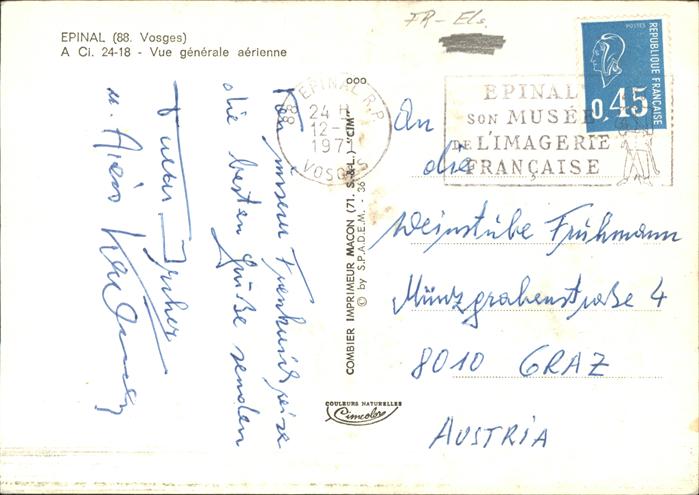 EPINAL (88. Vosges)
A Ci. 24-18 - Vue générale aérienne
FR - Els.
Von unserer Frankreichreise
die besten Grüße senden
u.
COMBIER IMPRIMEUR MACON (71. S.-&-L.) "CIM"
© by S.P.A.D.E.M. - 36
COULEURS NATURELLES
Cimcolor
88 EPINAL R.P.
24 H
12-
197
VOSGES
EPINAL
SON MUSÉE
DE L'IMAGERIE
FRANÇAISE
POSTES
REPUBLIQUE FRANÇAISE
0,45
An
die
Weinstube Frühmann
Münzgrabenstraße 4
8010 GRAZ
AUSTRIA